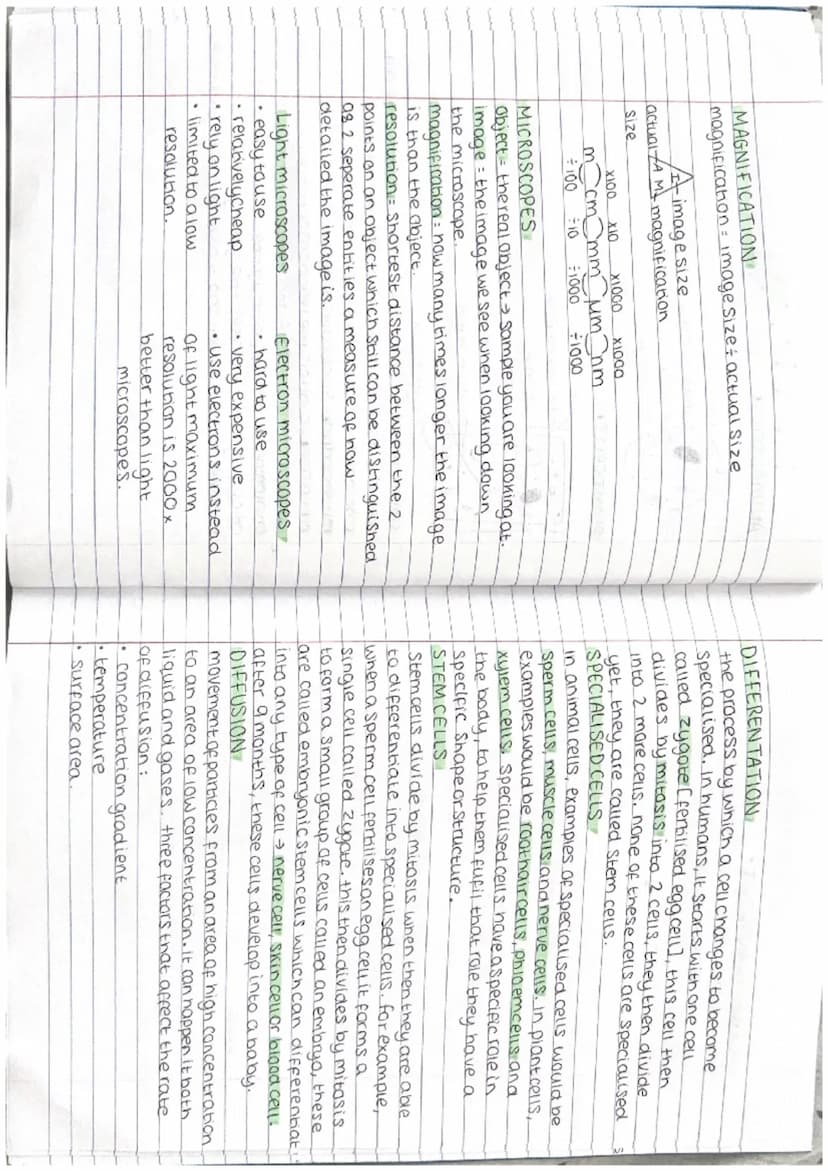 MAGNIFICATION
magnification = image size ÷ actual size
I - image size
actual - A M - magnification
size
x100 x10 x1000 x1000
m cm mm μm nm
÷100 ÷10 ÷1000 ÷1000
MICROSCOPES
object = the real object → sample you are looking at.
image = the image we see when looking down
the microscope.
magnification = how many times longer the image
is than the object.
resolution = shortest distance between the 2
points on an object which still can be distinguished
as 2 seperate entities a measure of how
detailed the image is.
Light microscopes
• easy to use
• relatively cheap
• rely on light
• limited to a low
resolution.
Electron microscopes
• hard to use
• very expensive
• use electrons instead
of light maximum
resolution is 2000x
better than light
microscopes.
DIFFERENTATION
the process by which a cell changes to become
specialised. in humans, it starts with one cell
called zygote [fertilised egg cell], this cell then
divides by mitosis into 2 cells, they then divide
into 2 more cells. none of these cells are specialised
yet, they are called stem cells.
SPECIALISED CELLS
in animal cells, examples of specialised cells would be
sperm cells, muscle cells and nerve cells. in plant cells,
examples would be root hair cells, phloem cells and
xylem cells. specialised cells have a specific role in
the body, to help them fufil that role they have a
specific shape or structure.
STEM CELLS
Stem cells divide by mitosis when then they are able
to differentiate into specialised cells. for example,
when a sperm cell fertilises an egg cell it forms a
single cell called zygote. this then divides by mitosis
to form a small group of cells called an embryo, these
are called embryonic stem cells which can differentiat
into any type of cell → nerve cell, skin cell or blood cell.
after 9 months, these cells develop into a baby.
DIFFUSION
movement of particles from an area of high concentration
to an area of low concentration. it can happen it both
liquid and gases. three factors that affect the rate
of diffusion:
• concentration gradient
• temperature
• surface area.